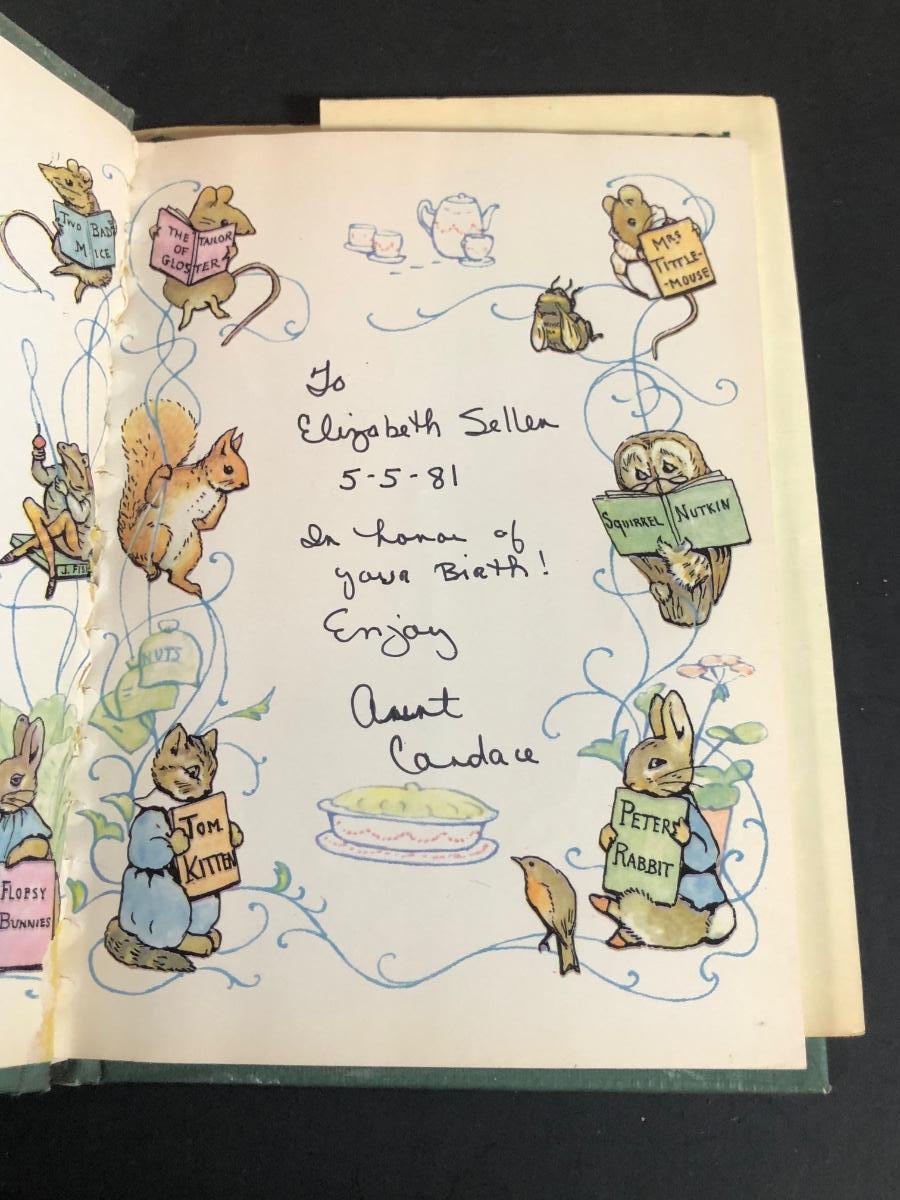 TWO BAD
MICE
THE TAILOR
OF
GLOSTER
MRS
TITTLE-
-MOUSE
To
Elizabeth Sellen
5-5-81
SQUIRREL NUTKIN
In honor of
your Birth!
J. FIS
Enjoy
NUTS
Aunt
Candace
TOM
KITTEN
PETER
RABBIT
FLOPSY
BUNNIES